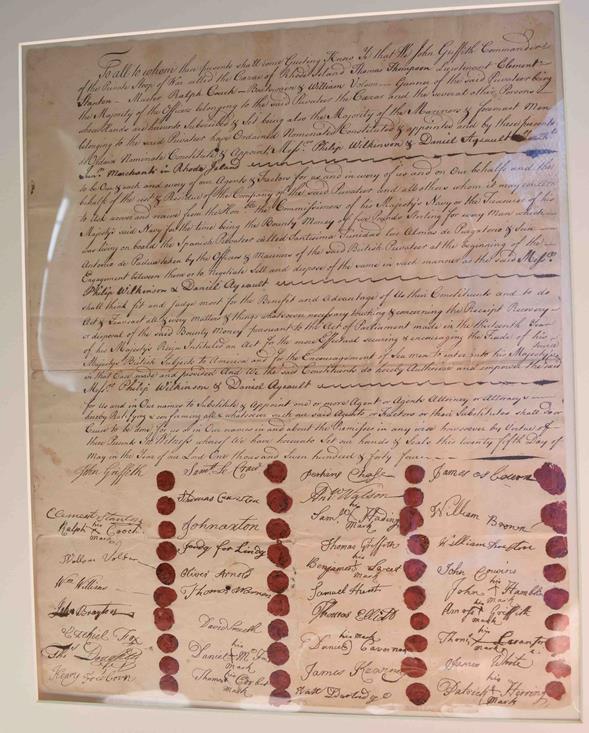 To all to whom these presents shall come Greeting Know Ye that We John Griffith Commander
of the Private Sloop of War called the Cæsar of Rhodeisland Thomas Thompson Lieutenant Clement
Stanton Master Ralph Cooch Boatswain & William Gunner of the said Privateer being
the Majority of the Officers belonging to the said Privateer the Cæsar and the several other Persons
whose Hands are hereunto Subscribed & Set being also the Majority of the Mariners & foremast Men
belonging to the said Privateer have Ordained Nominated Constituted & appointed and by these presents
Ordain Nominate Constitute & Appoint Messrs. Philip Wilkinson & Daniel Ayrault
Junr. Merchants in Rhode Island
to be Our & each and every of our Agents & Factors for us and in every of us and on Our behalfs and the
behalf of the rest & Residue of the Company of the said Privateer and all others whom it may concern
to ask receive and from the Honble. the Commissioners of his Majesty's Navy or the Treasurer of his
Majesty's said Navy for the time being the Bounty Money of five Pounds Sterling for every Man which
was living on board the Spanish Privateer called Santissima Trinidad Las Almas de Purgatorio & San
Antonio de Padua taken by the Officers & Mariners of the said British Privateer at the beginning of the
Engagement between them or to Negotiate Sell and dispose of the same in such manner as the said Messrs.
Philip Wilkinson & Daniel Ayrault
shall think fit and judge most for the Benefit and Advantage of Us their Constituents and to do
Act & Transact all & every matters & things whatsoever necessary touching & concerning the Receipt Recovery
& disposal of the said Bounty Money pursuant to the Act of Parliament made in the thirteenth Year
of his Majesty's Reign Intituled an Act for the more Effectual securing & encouraging the Trade of his
Majesty's British Subjects to America and for the Encouragement of Seamen to enter into his Majesty's Service
in that Case made and provided And We the said Constituents do hereby Authorize and empower the said
Messrs. Philip Wilkinson & Daniel Ayrault
for Us and in Our names to Substitute & Appoint one or more Agent or Agents Attorney or Attorneys
hereby Ratifying & confirming all & whatsoever such our said Agents or Factors or their Substitutes shall do or
Cause to be done for us or in Our names in and about the Premises in any wise howsoever by Virtue of
these Presents In Witness whereof We have hereunto Set our hands & Seals this twenty fifth Day of
May in the Year of our Lord One thousand Seven hundred & forty four
John Griffith Perkins Chase James
Thomas
Clement Stanton Saml. his mark William Brown
Ralph his mark Cooch John axton Thomas Griffith William
Sandy for Lindy Benjamin his mark John
William Oliver Arnold Samuel John his mark Hamble
Wm Williams Thomas Brown Thomas Elliott Amos his mark Griffith
John David Smith Daniel his mark Thoms. his mark
Ezekiel Fox Daniel his mark James White
James Patrick his mark Herring
Thomas his mark